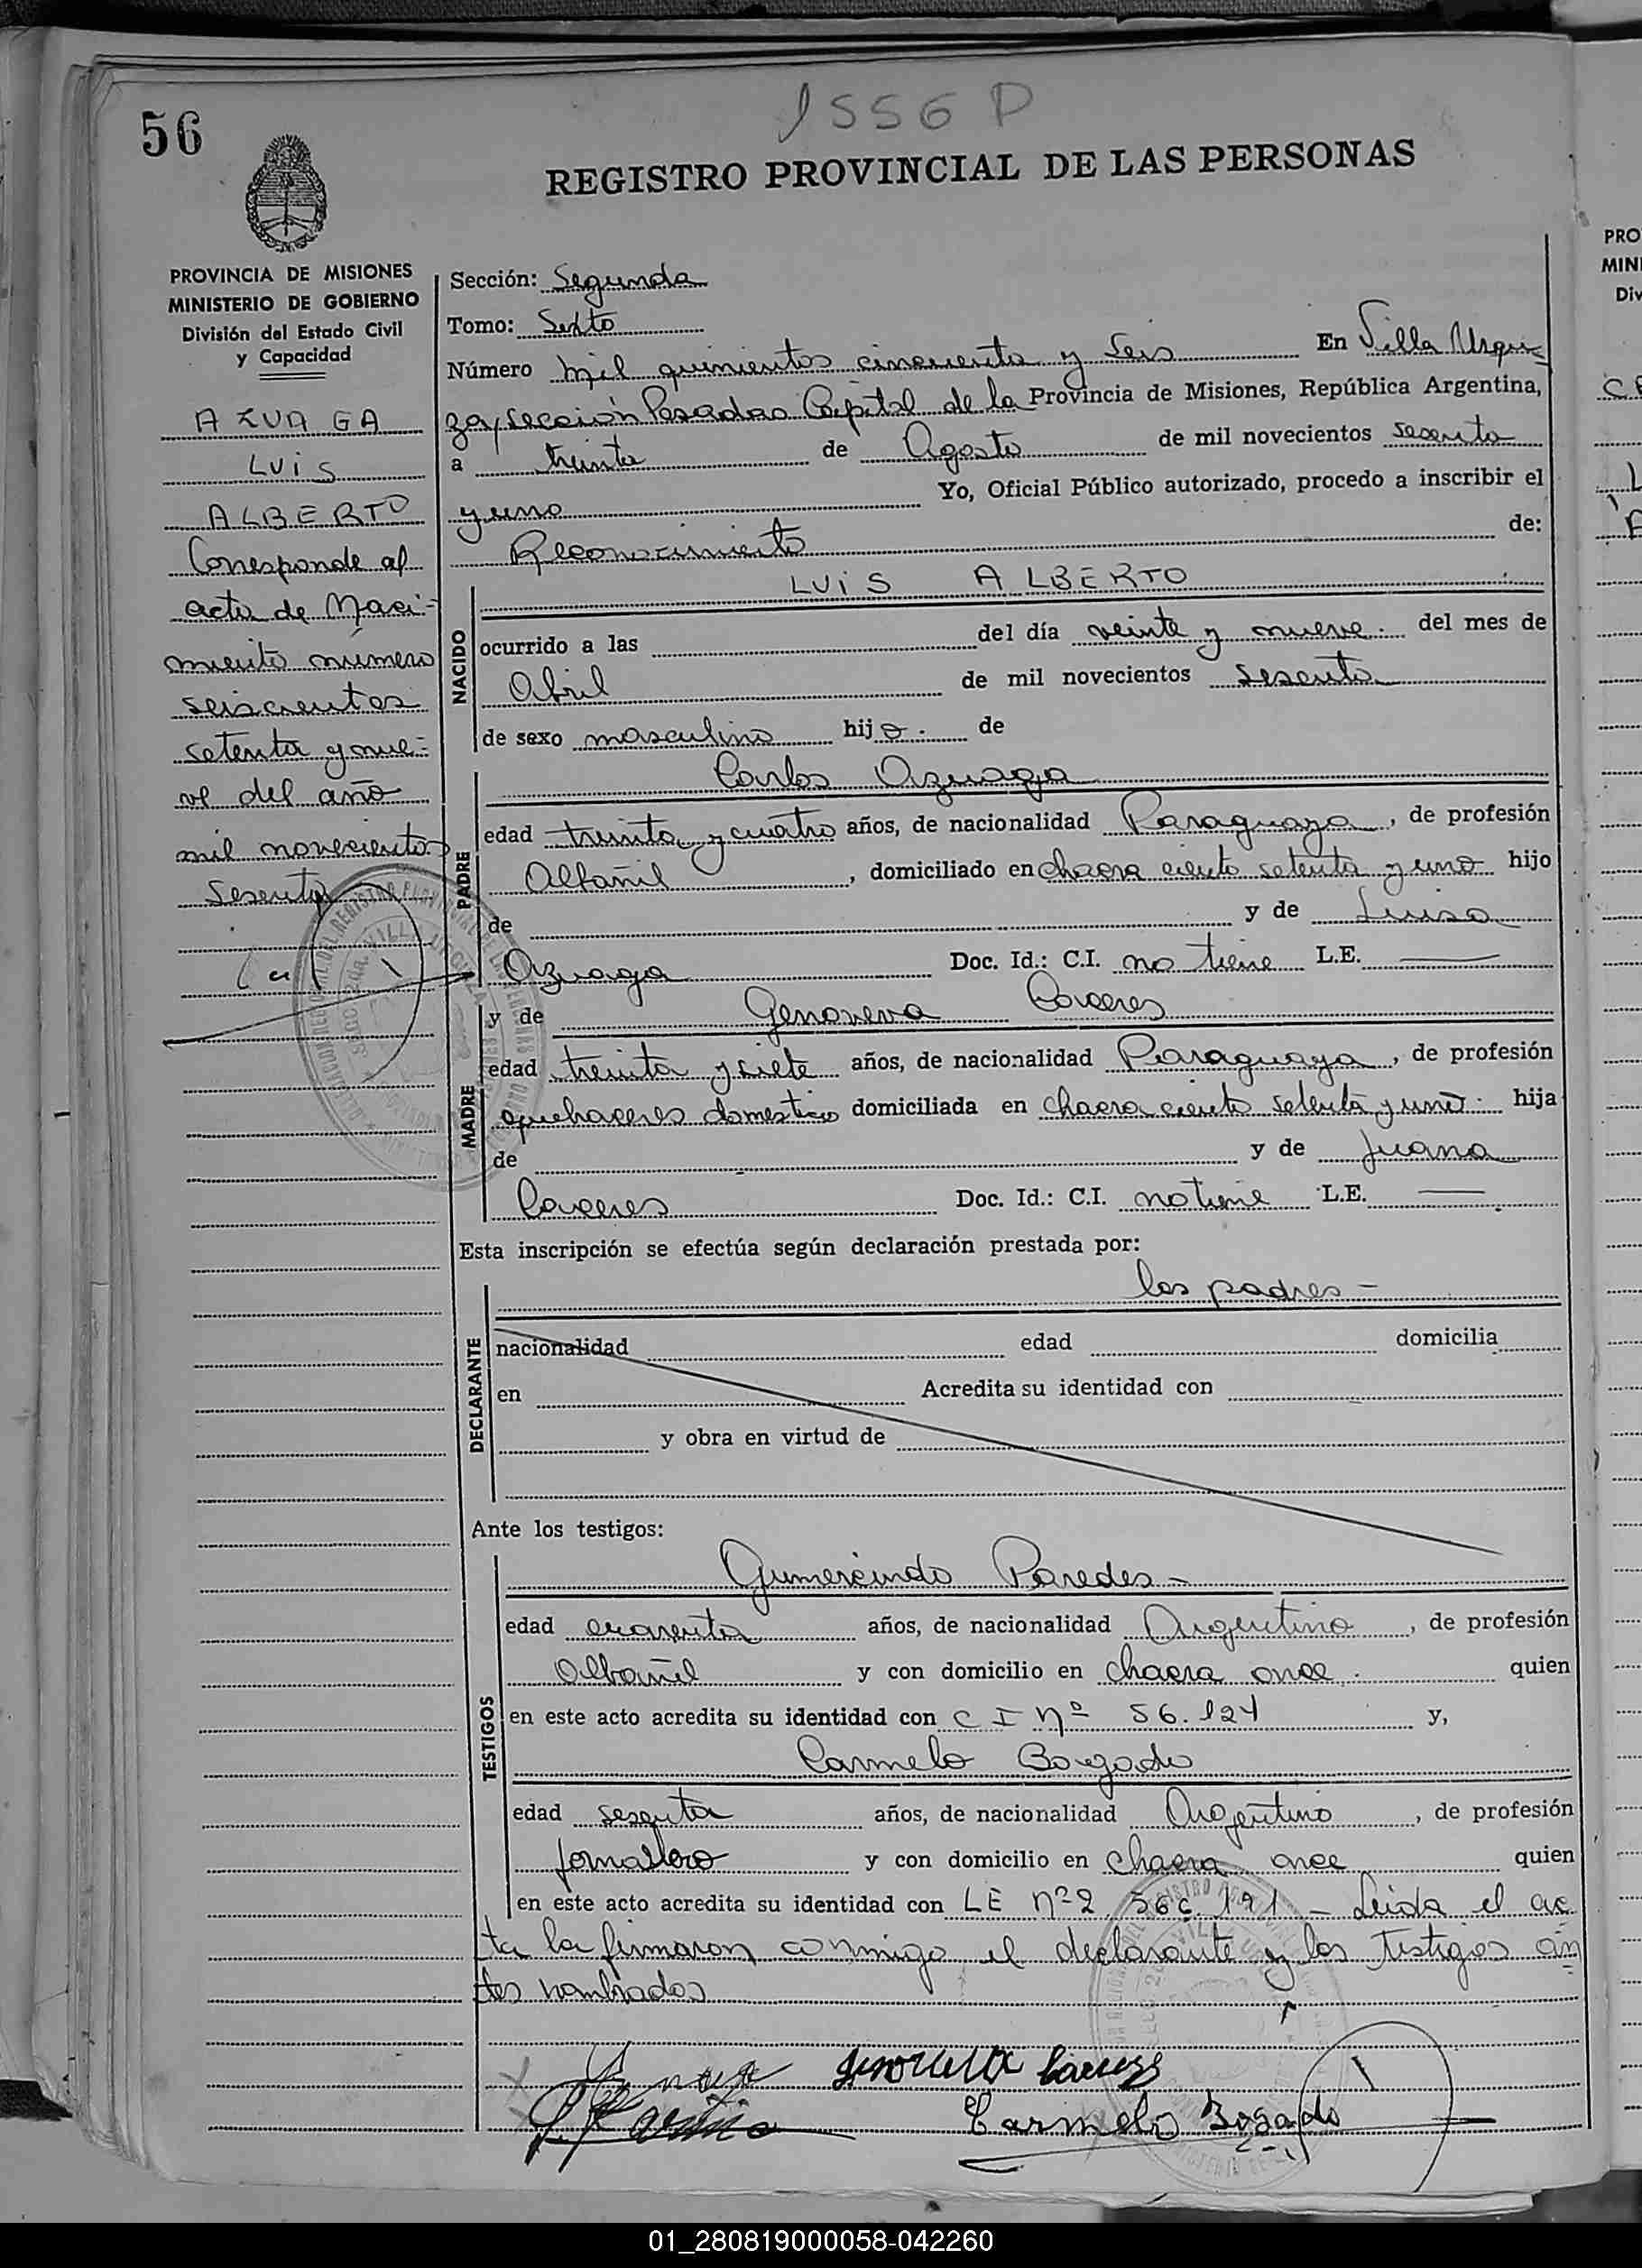 1556 P
56
REGISTRO PROVINCIAL DE LAS PERSONAS
PROVINCIA DE MISIONES
MINISTERIO DE GOBIERNO
División del Estado Civil
y Capacidad
AZUAGA
LUIS
ALBERTO
Corresponde al
acta de Naci-
miento número
seiscientos
setenta y nue-
ve del año
mil novecientos
sesenta
Sección: Segunda
Tomo: Sexto
Número mil quinientos cincuenta y seis En Villa Urqui-
za, sección Posadas Capital de la Provincia de Misiones, República Argentina,
a treinta de Agosto de mil novecientos sesenta
y uno Yo, Oficial Público autorizado, procedo a inscribir el
Reconocimiento de:
NACIDO
LUIS ALBERTO
ocurrido a las del día veinte y nueve. del mes de
Abril de mil novecientos sesenta
de sexo masculino hijo. de
PADRE
Carlos Azuaga
edad treinta y cuatro años, de nacionalidad Paraguaya, de profesión
Albañil, domiciliado en chacra ciento setenta y uno hijo
de y de Luisa
Azuaga Doc. Id.: C.I. no tiene L.E. —
MADRE
y de Genoveva Caceres
edad treinta y siete años, de nacionalidad Paraguaya, de profesión
quehaceres domestico domiciliada en chacra ciento setenta y uno. hija
de y de Juana
Caceres Doc. Id.: C.I. no tiene L.E. —
Esta inscripción se efectúa según declaración prestada por:
DECLARANTE
los padres –
nacionalidad edad domicilia
en Acredita su identidad con
y obra en virtud de
Ante los testigos:
TESTIGOS
Gumercindo Paredes –
edad cuarenta años, de nacionalidad Argentino, de profesión
Albañil y con domicilio en chacra once. quien
en este acto acredita su identidad con C I Nº 56.124 y,
Carmelo Bogado
edad sesenta años, de nacionalidad Argentino, de profesión
jornalero y con domicilio en chacra once quien
en este acto acredita su identidad con LE nº 2 – Leida el ac
ta la firmaron conmigo el declarante y los testigos an
tes nombrados
Genoveva Caceres
Carmelo Bogado
PRO
MINI
Div
01_280819000058-042260